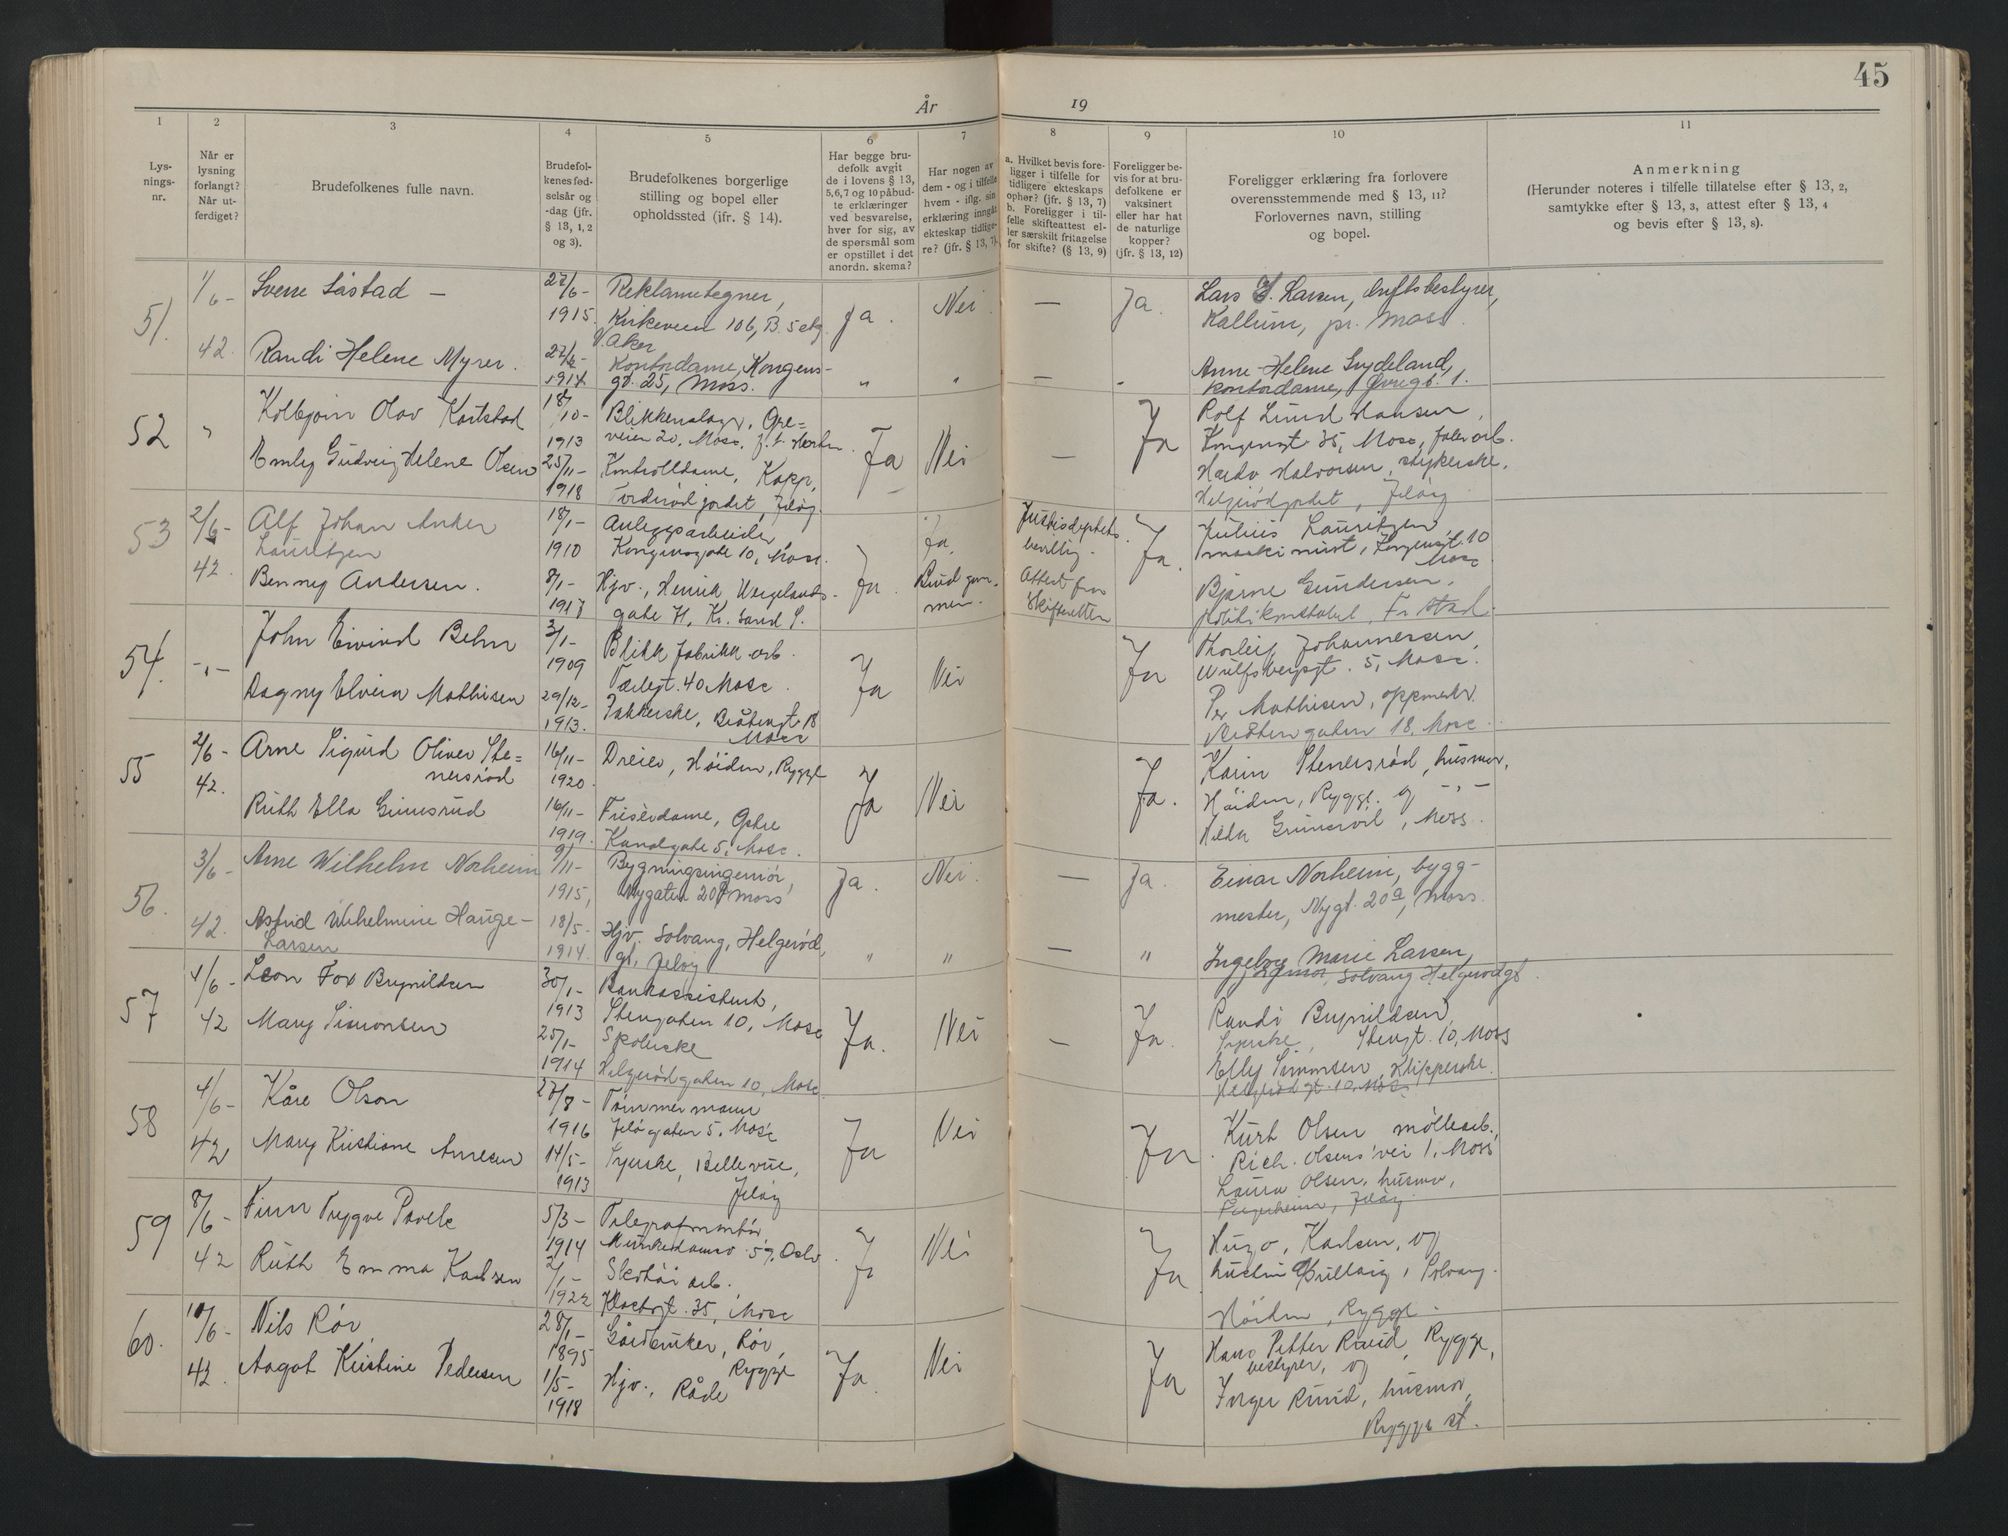 45
År 19
1 2 3 4 5 6 7 8 9 10 11
Lys-
nings-
nr.
Når er
lysning
forlangt?
Når ut-
ferdiget?
Brudefolkenes fulle navn.
Brudefol-
kenes fød-
selsår og
-dag (jfr.
§ 13, 1, 2
og 3).
Brudefolkenes borgerlige
stilling og bopel eller
opholdssted (jfr. § 14).
Har begge bru-
defolk avgit
de i lovens § 13,
5,6,7 og 10 påbud-
te erklæringer
ved besvarelse,
hver for sig, av
de spørsmål som
er opstillet i det
anordn. skema?
Har nogen av
dem - og i tilfelle
hvem - iflg. sin
erklæring inngått
ekteskap tidlige-
re? (jfr. § 13, 7).
a. Hvilket bevis fore-
ligger i tilfelle for
tidligere ekteskaps
ophør? (jfr. § 13, 7)
b. Foreligger i til-
felle skifteattest el-
ler særskilt fritagelse
for skifte? (§ 13, 9)
Foreligger be-
vis for at bru-
defolkene er
vaksinert
eller har hat
de naturlige
kopper?
(jfr. § 13, 12)
Foreligger erklæring fra forlovere
overensstemmende med § 13, 11?
Forlovernes navn, stilling
og bopel.
Anmerkning
(Herunder noteres i tilfelle tillatelse efter § 13, 2,
samtykke efter § 13, 3, attest efter § 13, 4
og bevis efter § 13, 8).
51. 1/6 - 42.
Sverre Såstad -
27/6 - 1915.
Reklametegner,
Kirkeveien 106, B. 5 etg.
V. Aker
Ja. Nei. — Ja.
Lars S. Larsen, driftsbestyrer,
Kallum, pr. Moss.
Randi Helene Myrer.
1914
Kontordame, Kongens-
gt. 25, Moss.
" " — "
Anne-Helene Sydeland,
kontordame, Øvregt. 1.
52 "
Kolbjørn Olav Karlstad
18/10 - 1913
Blikkenslager, Ore=
veien 20, Moss, f. t. Horten
Ja Nei — Ja
Rolf Lund Hansen,
Kongensgt 35, Moss,
Emly Gudveig Helene Olsen
25/11 - 1918
Kontrolldame, Kapp,
Torderødjordet, Jeløy
Halvorsen, strykerske,
Helgerødjordet, Jeløy
53 2/6 - 42.
Alf Johan Anker
Lauritzen
18/1 - 1910
Anleggsarbeider,
Kongensgate 10, Moss.
Ja. Ja,
Brudgom-
men.
Justisdeptets.
bevillig.
Attest fra
Skifteretten
Ja.
Julius Lauritzen,
maskinist, Kongensgt. 10
Moss
Benney Andersen.
8/1 - 1917
Hjv., Henrik Wergelands-
gate 4, Kr. sand S.
Bjarne Gundersen,
politikonstabel, Fr stad.
54. -"-
John Eivind Behn
3/1 - 1909
Blikkfabrikk arb.
40 Moss.
Ja Nei Ja
Thorleif Johannessen,
Wulfsbergsgt. 5, Moss.
Dagny Elvira Mathisen
29/12 - 1913.
Pakkerske, Bråtengt 18
Moss
Per Mathisen,
Bråtengaten 18, Moss.
55 2/6 - 42.
Arne Sigurd Oliver Ste=
nersrød
16/11 - 1920.
Dreier, Høiden, Rygge
Ja Nei Ja.
Karin Stenersrød, husmor,
Høiden, Rygge. og -"-
Ruth Ella Grimsrud
16/11 - 1919.
Frisérdame, Østre
Kanalgate 5, Moss.
Hilda Grimsrød, Moss.
56. 3/6 - 42.
Arne Wilhelm Norheim
9/11 - 1915,
Bygningsingeniør,
Nygaten 20 Moss
Ja. Nei. — Ja.
Einar Norheim, bygg-
mester, Nygt. 20a, Moss.
Astrid Wilhelmine Hauge-
Larsen
18/5 - 1914.
Hjv. Solvang, Helgerød,
gt, Jeløy
" " — "
Ingeborg Marie Larsen,
Solvang Helgerødgt
57 4/6 - 42
Leon Fox Brynildsen
30/1 - 1913
Bankassistent,
Stengaten 10, Moss
Ja. Nei — Ja.
Randi Brynildsen,
Syerske, Stengt. 10, Moss
Mary Simonsen
25/1 - 1914
Helgerødgaten 10, Moss.
Elly Simonsen, Klipperske.
Helgerødgt. 10, Moss
58 4/6 - 42
Kåre Olsen
27/8 - 1916
Tømmermann
Jeløgaten 5, Moss
Ja Nei Ja.
Kurt Olsen møllearb.,
Rich. Olsens vei 1, Moss
Mary Kristiane Arnesen
14/5 - 1913
Syerske, Bellevue,
Jeløy
Laura Olsen, husmor,
Jeløy
59 8/6 - 42
Finn Trygve Pavels
5/3 - 1914
Munkedamsv. 59, Oslo
Ja Nei Ja
Hugo Karlsen, og
hustru Solvang.
Høiden, Rygge.
Ruth Emma Karlsen
2/1 - 1922
Skotøi arb.
Klostergt. 35, Moss
60. 10/6 - 42.
Nils Rør
28/1 - 1895
Gårdbruker, Rør,
Rygge
Ja. Nei Ja
Hans Petter Ruud, Rygge,
bestyrer, og
Aagot Kristine Pedersen
1/5 - 1918
Hjv., Råde
Inger Ruud, husmor,
Rygge st.